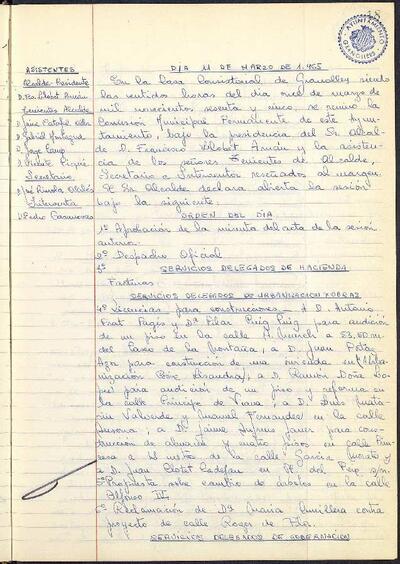 AYUNTAMIENTO
GRANOLLERS
ASISTENTES
Alcalde-Presidente
Tenientes Alcalde
Secretario
Interventor
DIA 11 DE MARZO DE 1.965
En la Casa Consistorial de Granollers siendo
las veintidós horas del día once de marzo de
mil novecientos sesenta y cinco, se reune la
Comisión Municipal Permanente de este Ayun-
tamiento, bajo la presidencia del Sr. Alcal-
de D. Francisco Llobet Arnán y la asisten-
cia de los señores Tenientes de Alcalde,
Secretario e Interventor reseñados al margen.
El Sr. Alcalde declara abierta la sesión
bajo la siguiente
ORDEN DEL DIA
1º Aprobación de la minuta del acta de la sesión
anterior.
2º Despacho Oficial
3º SERVICIOS DELEGADOS DE HACIENDA
Facturas
SERVICIOS DELEGADOS DE URBANIZACION Y OBRAS
4º Licencias para construcciones - A D. Antonio
Prat Pagès y Dª Pilar Puig Puig para audición
de un piso en la calle
Paseo de la Montaña, a D. Juan
para construcción de una vivienda en
a D. Ramón Doña
para audición de un piso y reforma en
la calle Principe de Viana, a D. Luis
Valverde y Manuel Fernandez en la calle
a D. Jaime Suprms Janer para cons-
trucción de almacén y cuatro pisos en calle
a 18 metros de la calle García Morato y
a D. Juan Clotet
5º Propuesta sobre cambio de nombre en la calle
Alfonso IV
6º Reclamación de Dª Maria Cumillera contra
proyecto de calle Roger de Flor.
SERVICIOS DELEGADOS DE GOBERNACION